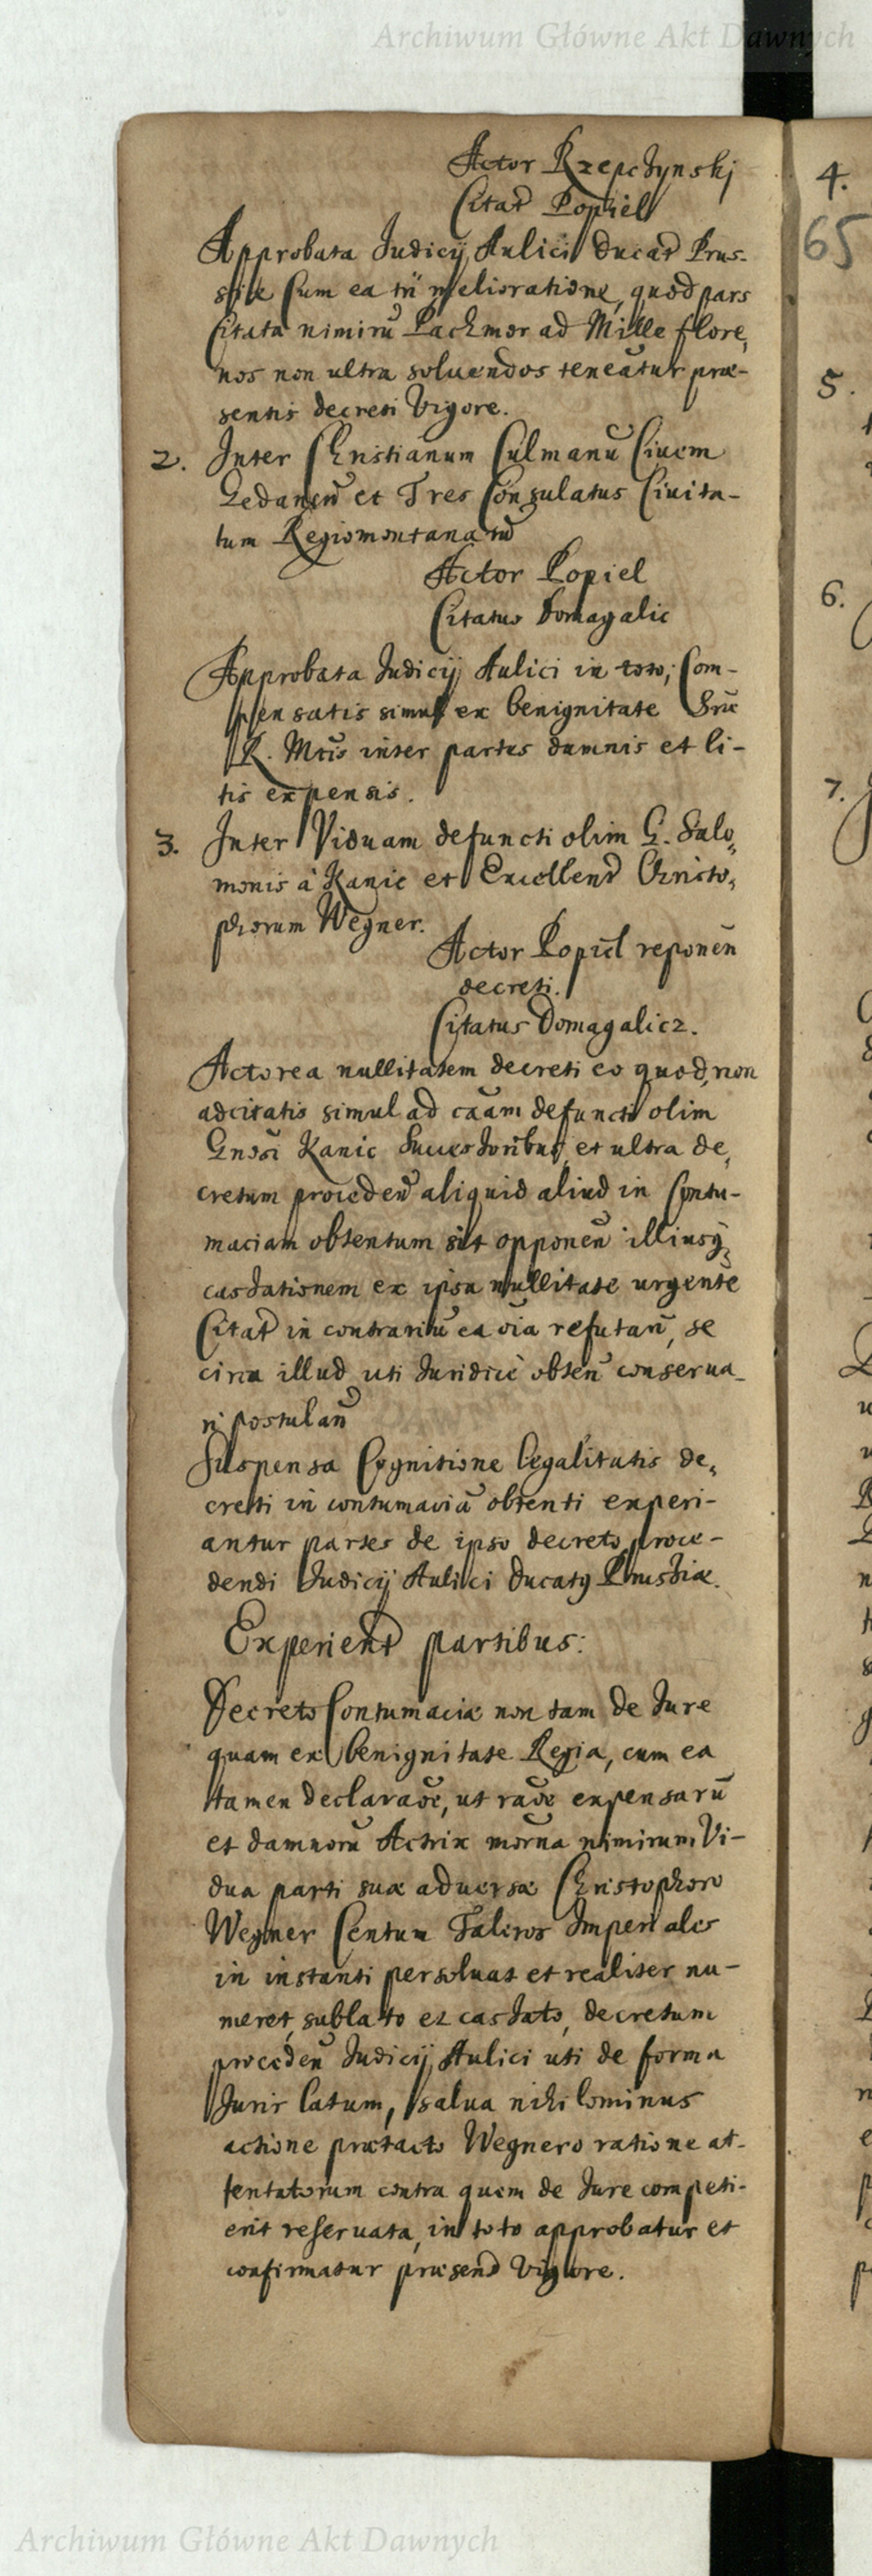 Archiwum Główne Akt Dawnych
Actor Rzepczynskj
Citat Popiel
Approbata Judicij Aulici Ducat Prus-
siae cum ea tn melioratione, quod pars
Citata nimirũ Pachmor ad Mille flore,
nos non ultra soluendos teneatur prae-
sentis decreti Vigore.
2. Inter Christianum Culmanũ Ciuem
Gedanen et Tres Consulatus Ciuita-
tum Regiomontanarũ
Actor Popiel
Citatus Domagalic
Approbata Judicij Aulici in toto, Com-
pensatis simul ex benignitate Srae
R. Mtis inter partes damnis et li-
tis expensis.
3. Inter Viduam defuncti olim G. Salo,
monis à Kanic et Excellent Christo,
phorum Wegner.
Actor Popiel reponen
decreti.
Citatus Domagalicz.
Actorea nullitatem decreti eo quod, non
adcitatis simul ad cãam defuncti olim
Gnosi Kanic Successoribus, et ultra de,
cretum proceden aliquid aliud in Contu-
maciam obtentum sit opponen illiusq
cassationem ex ipsa nullitate urgente
Citat in contrariũ ea oia refutan, se
circa illud uti Juridice obten conserua-
ri postulan
Suspensa Cognitione legalitatis de,
creti in contumaciã obtenti experi-
antur partes de ipso decreto proce-
dendi Judicij Aulici Ducatus Prussiae.
Experient partibus:
Decreto Contumaciae non tam de Jure
quam ex benignitate Regia, cum ea
tamen declaraõe, ut raõe expensarũ
et damnorũ Actrix nimirum Vi-
dua parti suae aduersae Christophoro
Wegner Centum Taleros Imperiales
in instanti persoluat et realiter nu-
meret, sublato et cassato, decretum
proceden Judicij Aulici uti de forma
Juris latum, salua nihilominus
actione praetacto Wegnero ratione at-
tentatorum contra quem de Jure competi-
erit reseruata, in toto approbatur et
confirmatur praesent Vigore.
4.
65
5.
6.
7.
Archiwum Główne Akt Dawnych